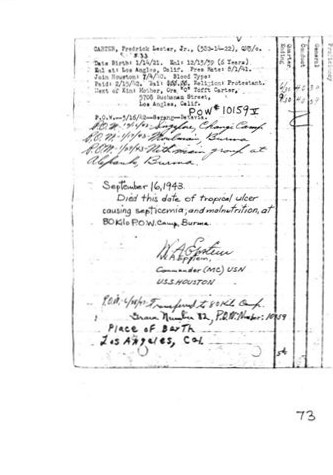 CARTER, Frederick Lester, Jr., (382-14-22), GM3/c.
#33
Date Birth: 1/14/21. Enl: 12/13/39 (6 Years)
Enl at: Los Angles, Calif. Free Rate: 8/1/41.
Join Houston: 7/4/40. Blood Type:
Paid: 2/15/42. Bal: Religion: Protestant.
Next of Kin: Mother, Ora "O" Tofft Carter,
5708 Buchanan Street,
Los Angeles, Calif.
POW# 10159 I
P.O.W. 3/16/42 Serang-Batavia.
P.O.W. Singapore, Changi Camp
P.O.W. Moulmein, Burma
P.O.W. With main group at
Burma
September 16, 1943.
Died this date of tropical ulcer
causing septicemia; and malnutrition, at
80 Kilo P.O.W. Camp, Burma.
W A Epstein
W A Epstein,
Commander (MC) USN
U.S.S. HOUSTON
P.O.W. Transferred to 80 Kilo Camp.
Grave Number 82, P.O.W. Number: 10159
Place of Barth
Los Angeles, Cal
Quarter
Ending
Conduct
General
Proficiency
73